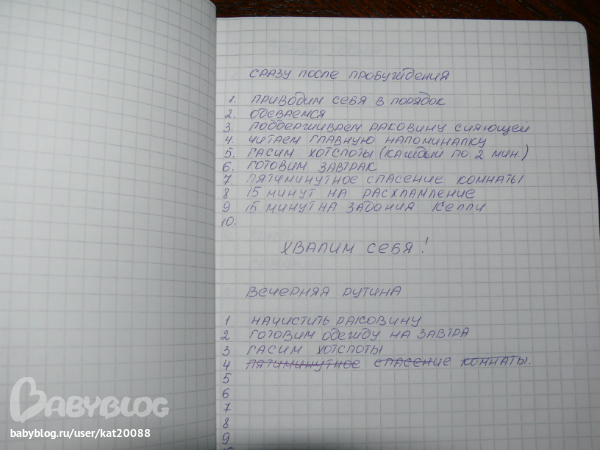 СРАЗУ ПОСЛЕ ПРОБУЖДЕНИЯ
1. ПРИВОДИМ СЕБЯ В ПОРЯДОК
2. ОДЕВАЕМСЯ
3. ПОДДЕРЖИВАЕМ РАКОВИНУ СИЯЮЩЕЙ
4. ЧИТАЕМ ГЛАВНУЮ НАПОМИНАЛКУ
5. ГАСИМ ХОТСПОТЫ (КАЖДЫЙ ПО 2 МИН.)
6. ГОТОВИМ ЗАВТРАК
7 ПЯТИМИНУТНОЕ СПАСЕНИЕ КОМНАТЫ
8 15 МИНУТ НА РАСХЛАМЛЕНИЕ
9 15 МИНУТ НА ЗАДАНИЯ КЕЛЛИ
10.
ХВАЛИМ СЕБЯ!
ВЕЧЕРНЯЯ РУТИНА
1 НАЧИСТИТЬ РАКОВИНУ
2 ГОТОВИМ ОДЕЖДУ НА ЗАВТРА
3 ГАСИМ ХОТСПОТЫ
4 ПЯТИМИНУТНОЕ СПАСЕНИЕ КОМНАТЫ.
5
6
7
8
9
BABYBLOG
babyblog.ru/user/kat20088